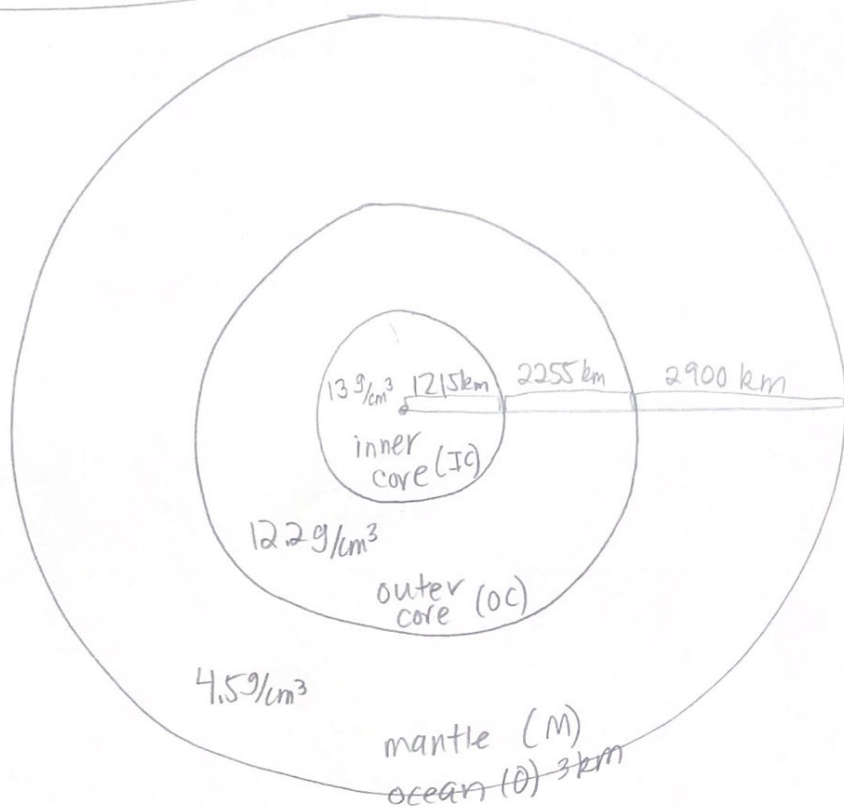 13 g/cm³ 1215km 2255 km 2900 km
inner
core (IC)
12.2 g/cm³
outer
core (OC)
4.5 g/cm³
mantle (M)
ocean (O) 3km